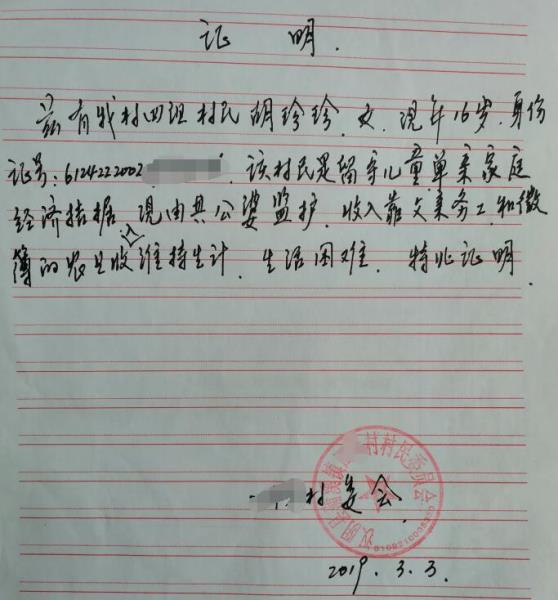 证 明.
兹有我村四组村民胡珍珍、女、现年16岁.身份
证号:6124222002 该村民是留守儿童单亲家庭
经济拮据、现由其公婆监护、收入靠父亲务工和微
薄的农业收入维持生计、生活困难、特此证明.
村村民委员会
村委会
2019.3.3.